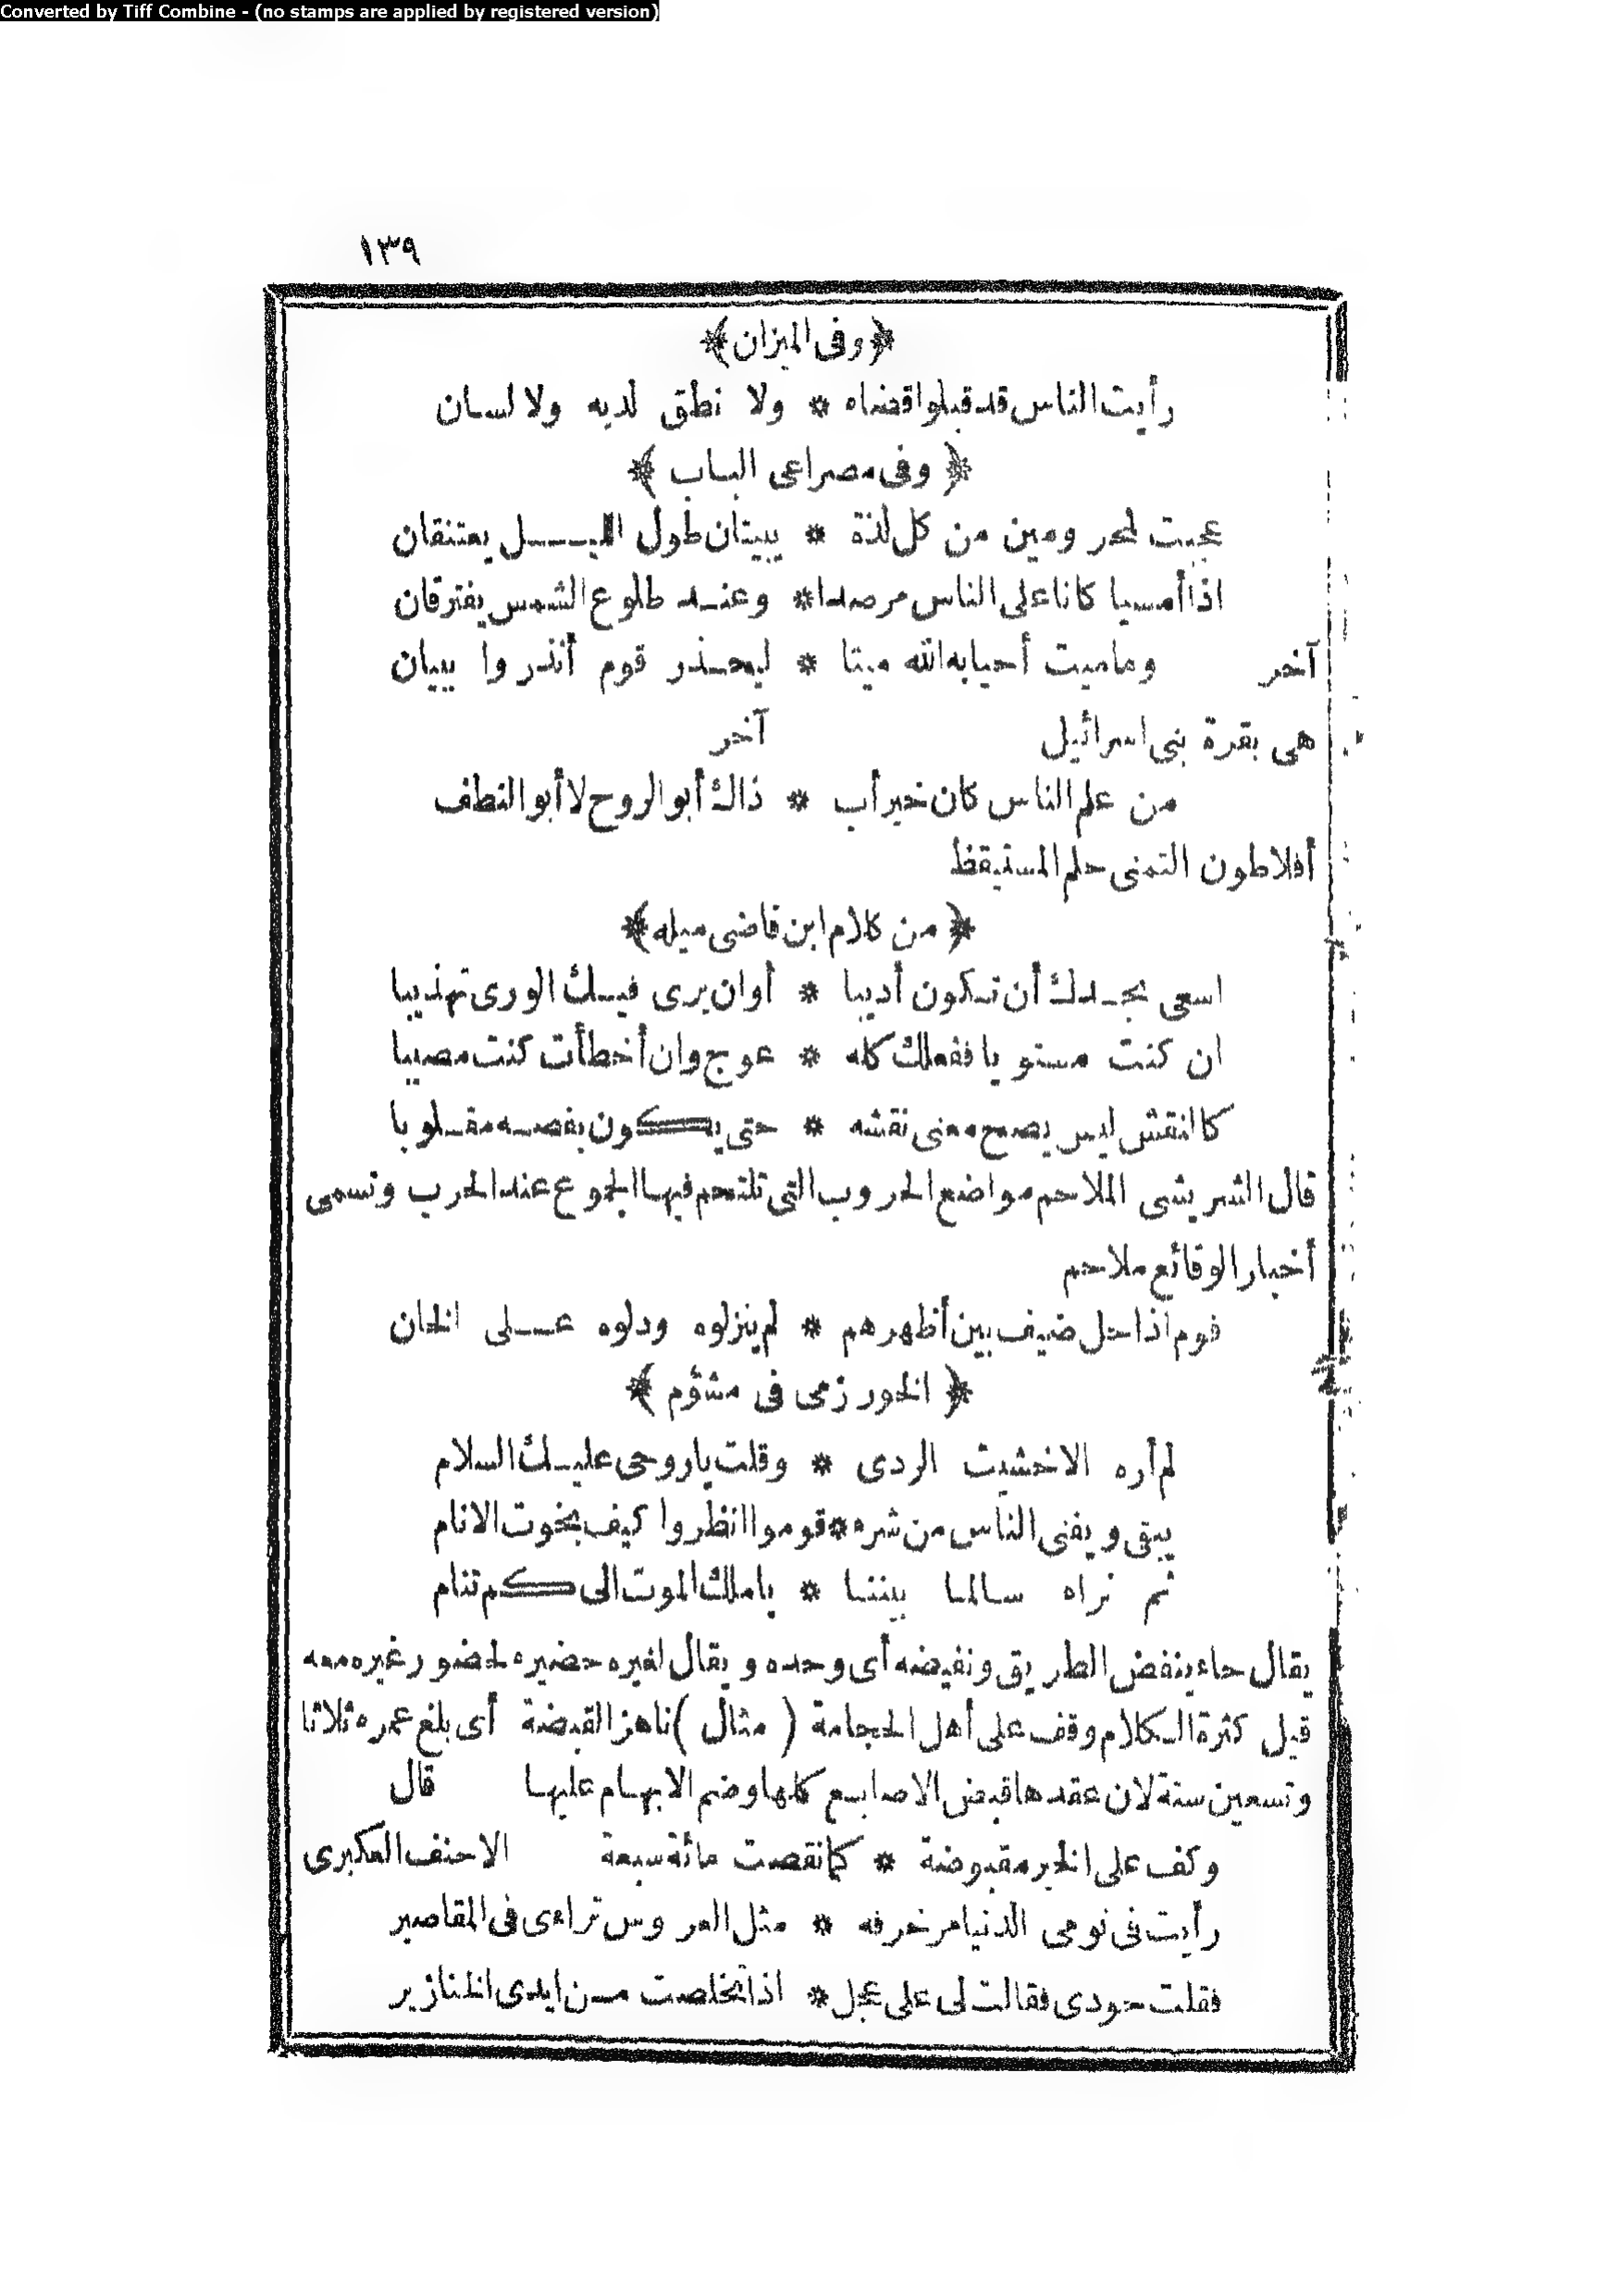 Converted by Tiff Combine - (no stamps are applied by registered version)
١٣٩
﴿وفى الميزان﴾
رأيت الناس قد قبلوا قضاه * ولا نطق لديه ولا لسان
﴿ وفى مصراعى الباب ﴾
عجبت لمحرومين من كل لذة * يبيتان طول الليل يعتنقان
اذا أمسيا كانا على الناس مرصدا * وعند طلوع الشمس يفترقان
آخر وما ميت أحيا به الله ميتا * ليحذر قوم أنذروا ببيان
هى بقرة بنى اسرائيل آخر
من علم الناس كان خير أب * ذاك أبو الروح لا أبو النطف
أفلاطون التمنى حلم المستيقظ
﴿ من كلام ابن قاضى ميله ﴾
اسعى بجدك أن تكون أديبا * أو ان يرى فيك الورى تهذيبا
ان كنت مستويا ففعلك كله * عوج وان أخطأت كنت مصيبا
كالنقش ليس يصح معنى نقشه * حتى يكون بفصه مقلوبا
قال الشريشى الملاحم مواضع الحروب التى تلتحم فيها الجموع عند الحرب وتسمى
أخبار الوقائع ملاحم
قوم اذا حل ضيف بين أظهرهم * لم ينزلوه ودلوه على الخان
﴿ الخورزمى فى مشؤم ﴾
لم أره الا خشيت الردى * وقلت يا روحى عليك السلام
يبقى ويفنى الناس من شره * قوموا انظروا كيف بخوت الانام
ثم نراه سالما بيننا * يا ملك الموت الى كم تنام
يقال جاء ينفض الطريق ونفيضه أى وحده ويقال لغيره حضيره لحضور غيره معه
قيل كثرة الكلام وقف على أهل الحجامة ( مثال ) ناهز القبضة أى بلغ عمره ثلاثا
وتسعين سنة لان عقدها قبض الاصابع كلها وضم الابهام عليها قال
وكف على الخير مقبوضة * كما نقصت مائة سبعة الاحنف العكبرى
رأيت فى نومى الدنيا مزخرفه * مثل العروس تراءى فى المقاصير
فقلت جودى فقالت لى على عجل * اذا تخلصت من ايدى الخنازير